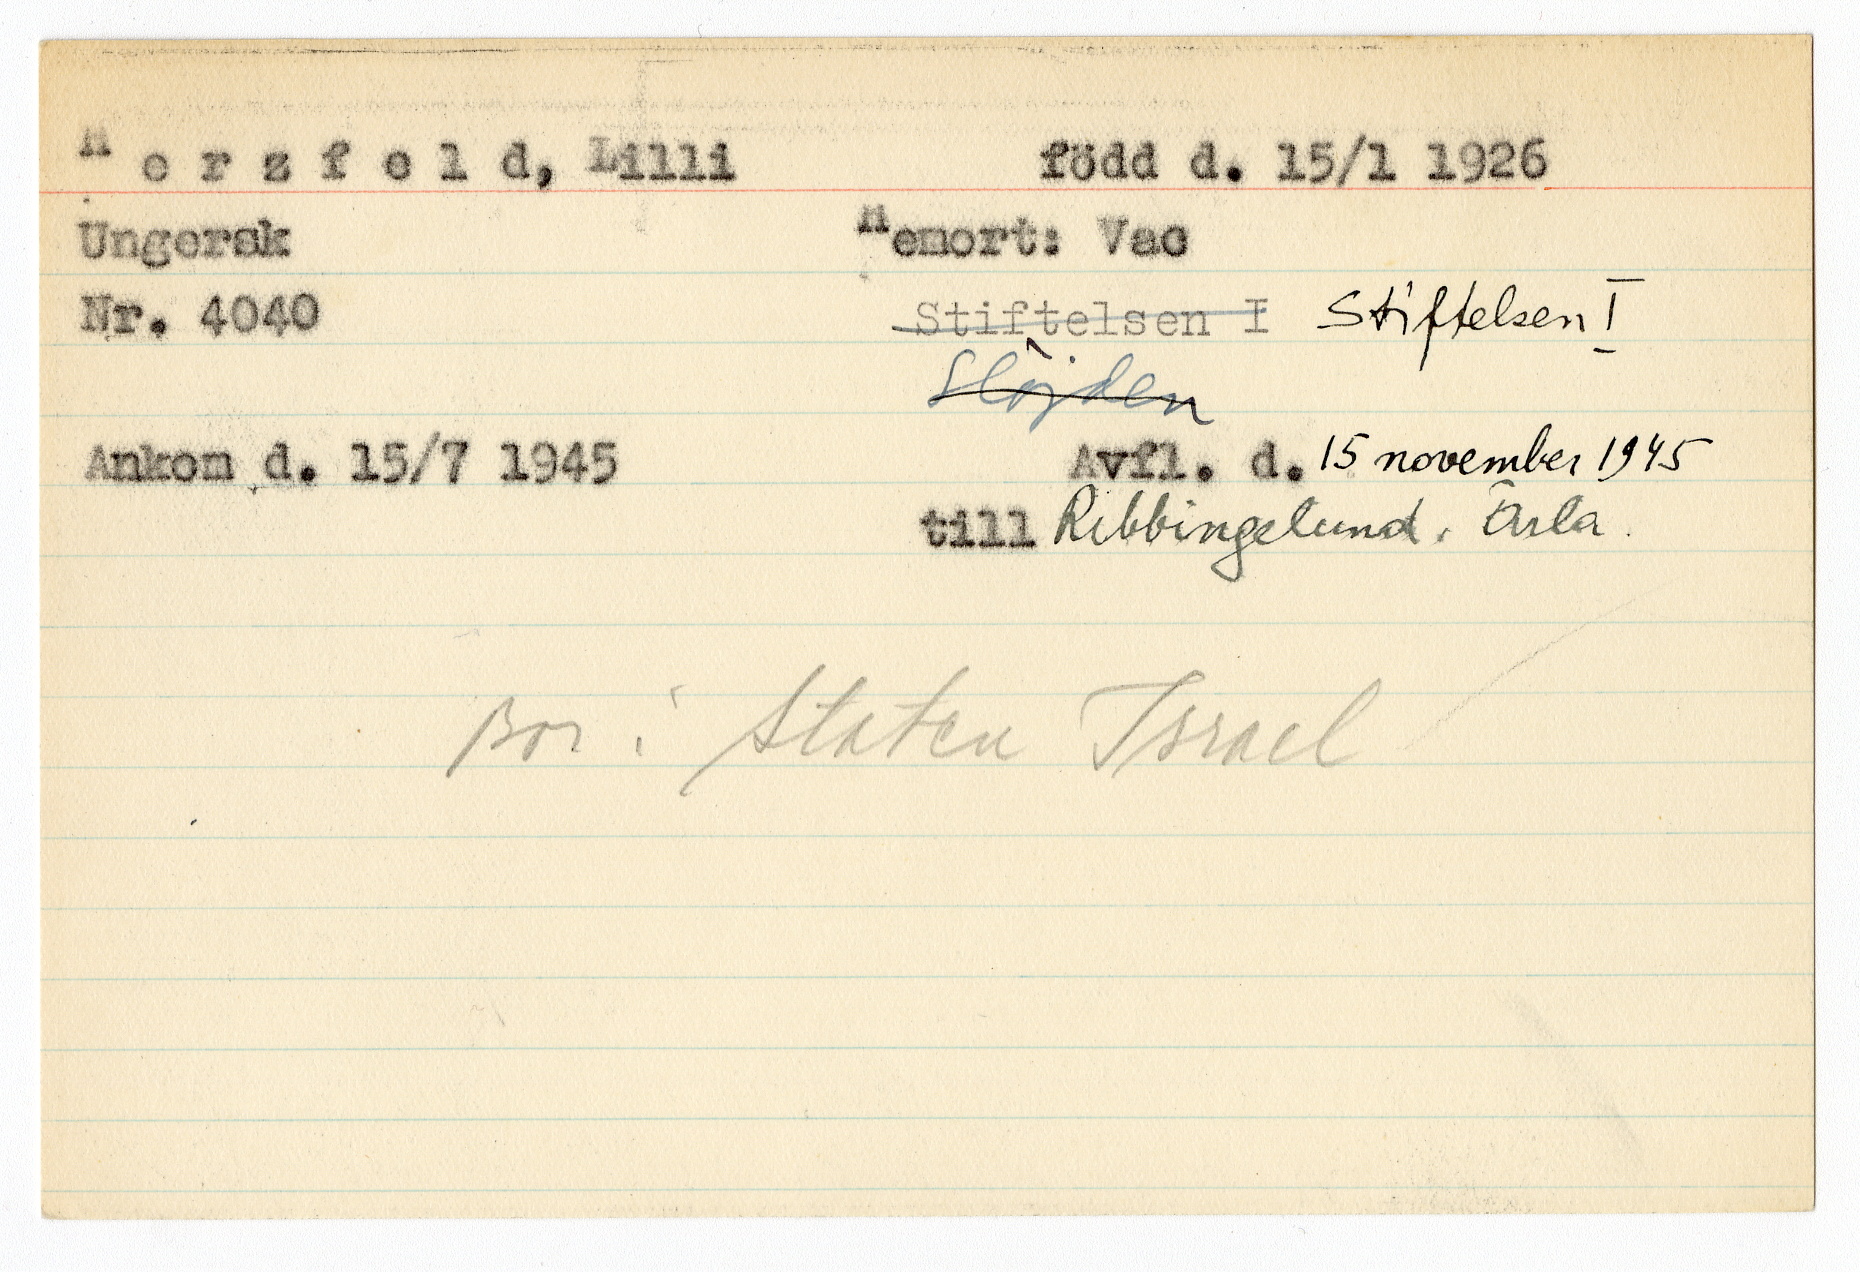 H e r z f e l d, Lilli född d. 15/1 1926
Ungersk Hemort: Vac
Nr. 4040 Stiftelsen I Stiftelsen I
Slöjden
Ankom d. 15/7 1945 Avfl. d. 15 november 1945
till Ribbingelund, Ärla.
Bor i Staten Israel